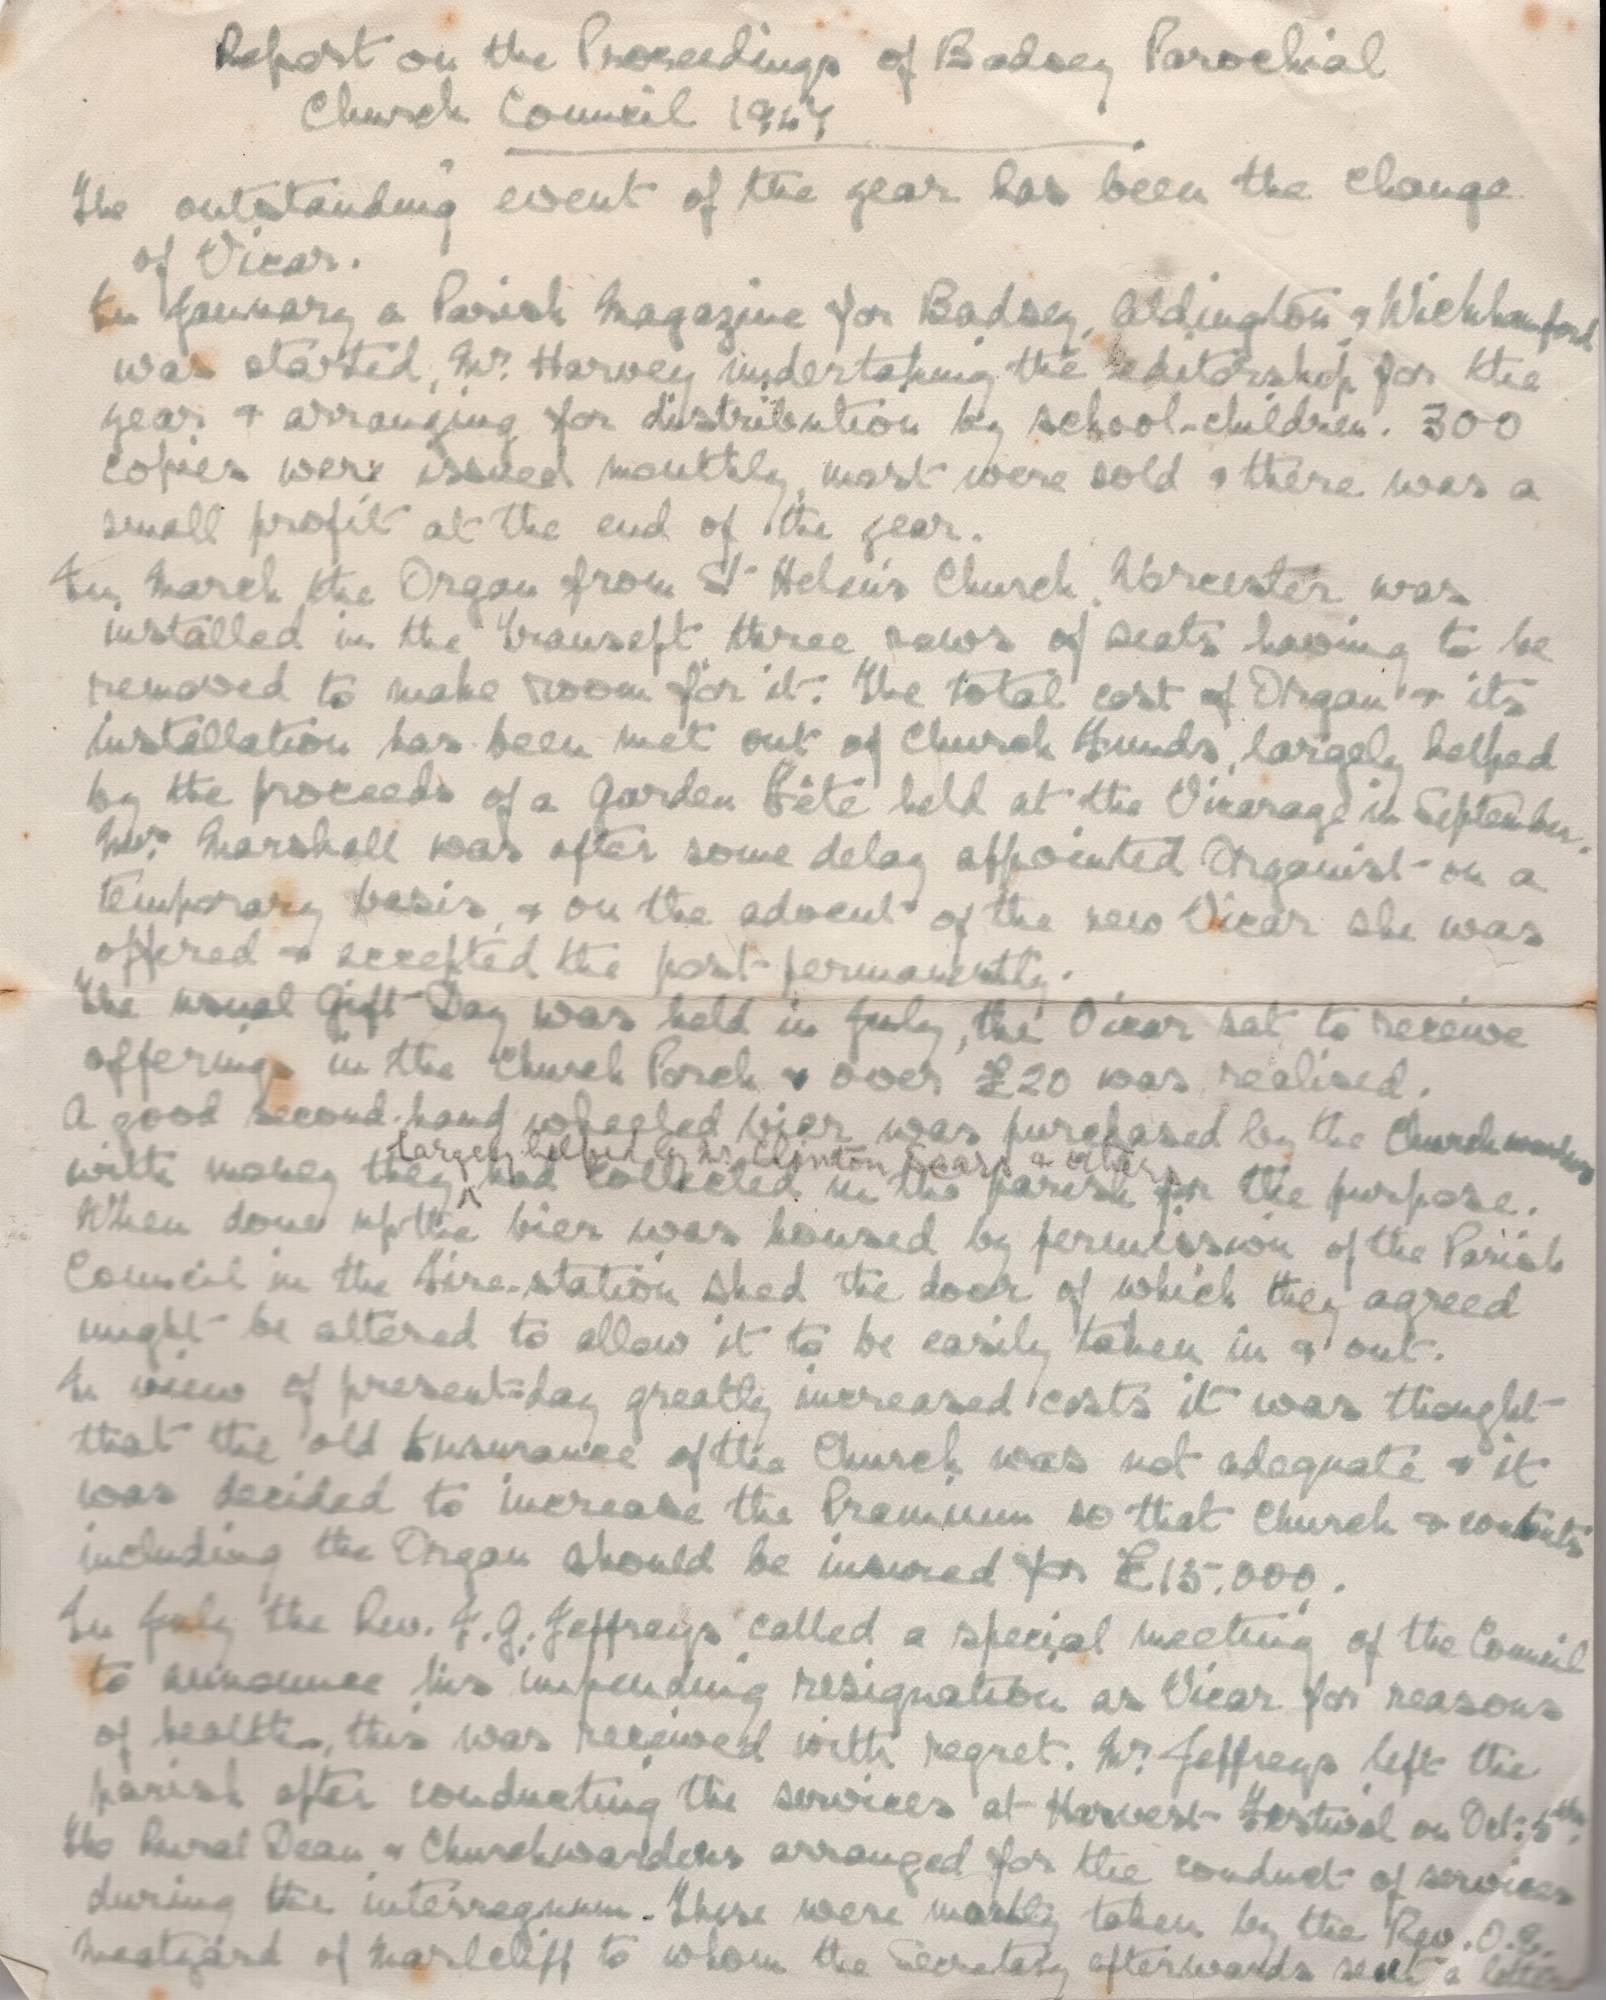 Report on the Proceedings of Badsey Parochial
Church Council 1947
The outstanding event of the year has been the change
of Vicar.
In January a Parish Magazine for Badsey, Aldington & Wickhamford
was started, Mr. Harvey undertaking the editorship for the
year & arranging for distribution by school-children. 300
copies were issued monthly, most were sold & there was a
small profit at the end of the year.
In March the Organ from St Helen's Church, Worcester was
installed in the Transept three rows of seats having to be
removed to make room for it. The total cost of Organ & its
installation has been met out of Church Funds, largely helped
by the proceeds of a Garden Fête held at the Vicarage in September.
Mrs. Marshall was after some delay appointed Organist on a
temporary basis, & on the advent of the new Vicar she was
offered & accepted the post permanently.
The usual Gift Day was held in July, the Vicar sat to receive
offerings in the Church Porch & over £20 was realised.
A good second-hand wheeled bier was purchased by the Churchwardens
largely helped by Mr. Clinton Sears & others
with money they ^ had collected in the parish for the purpose.
When done up the bier was housed by permission of the Parish
Council in the Fire-station shed the door of which they agreed
might be altered to allow it to be easily taken in & out.
In view of present-day greatly increased costs it was thought
that the old Insurance of the Church was not adequate & it
was decided to increase the Premium so that Church & contents
including the Organ should be insured for £15,000.
In July the Rev. F. G. Jeffreys called a special meeting of the Council
to announce his impending resignation as Vicar for reasons
of health, this was received with regret. Mr. Jeffreys left the
parish after conducting the services at Harvest Festival on Oct: 5th.
The Rural Dean & Churchwardens arranged for the conduct of services
during the interregnum. These were mostly taken by the Rev. O. E.
Meatyard of Marlcliff to whom the Secretary afterwards sent a letter